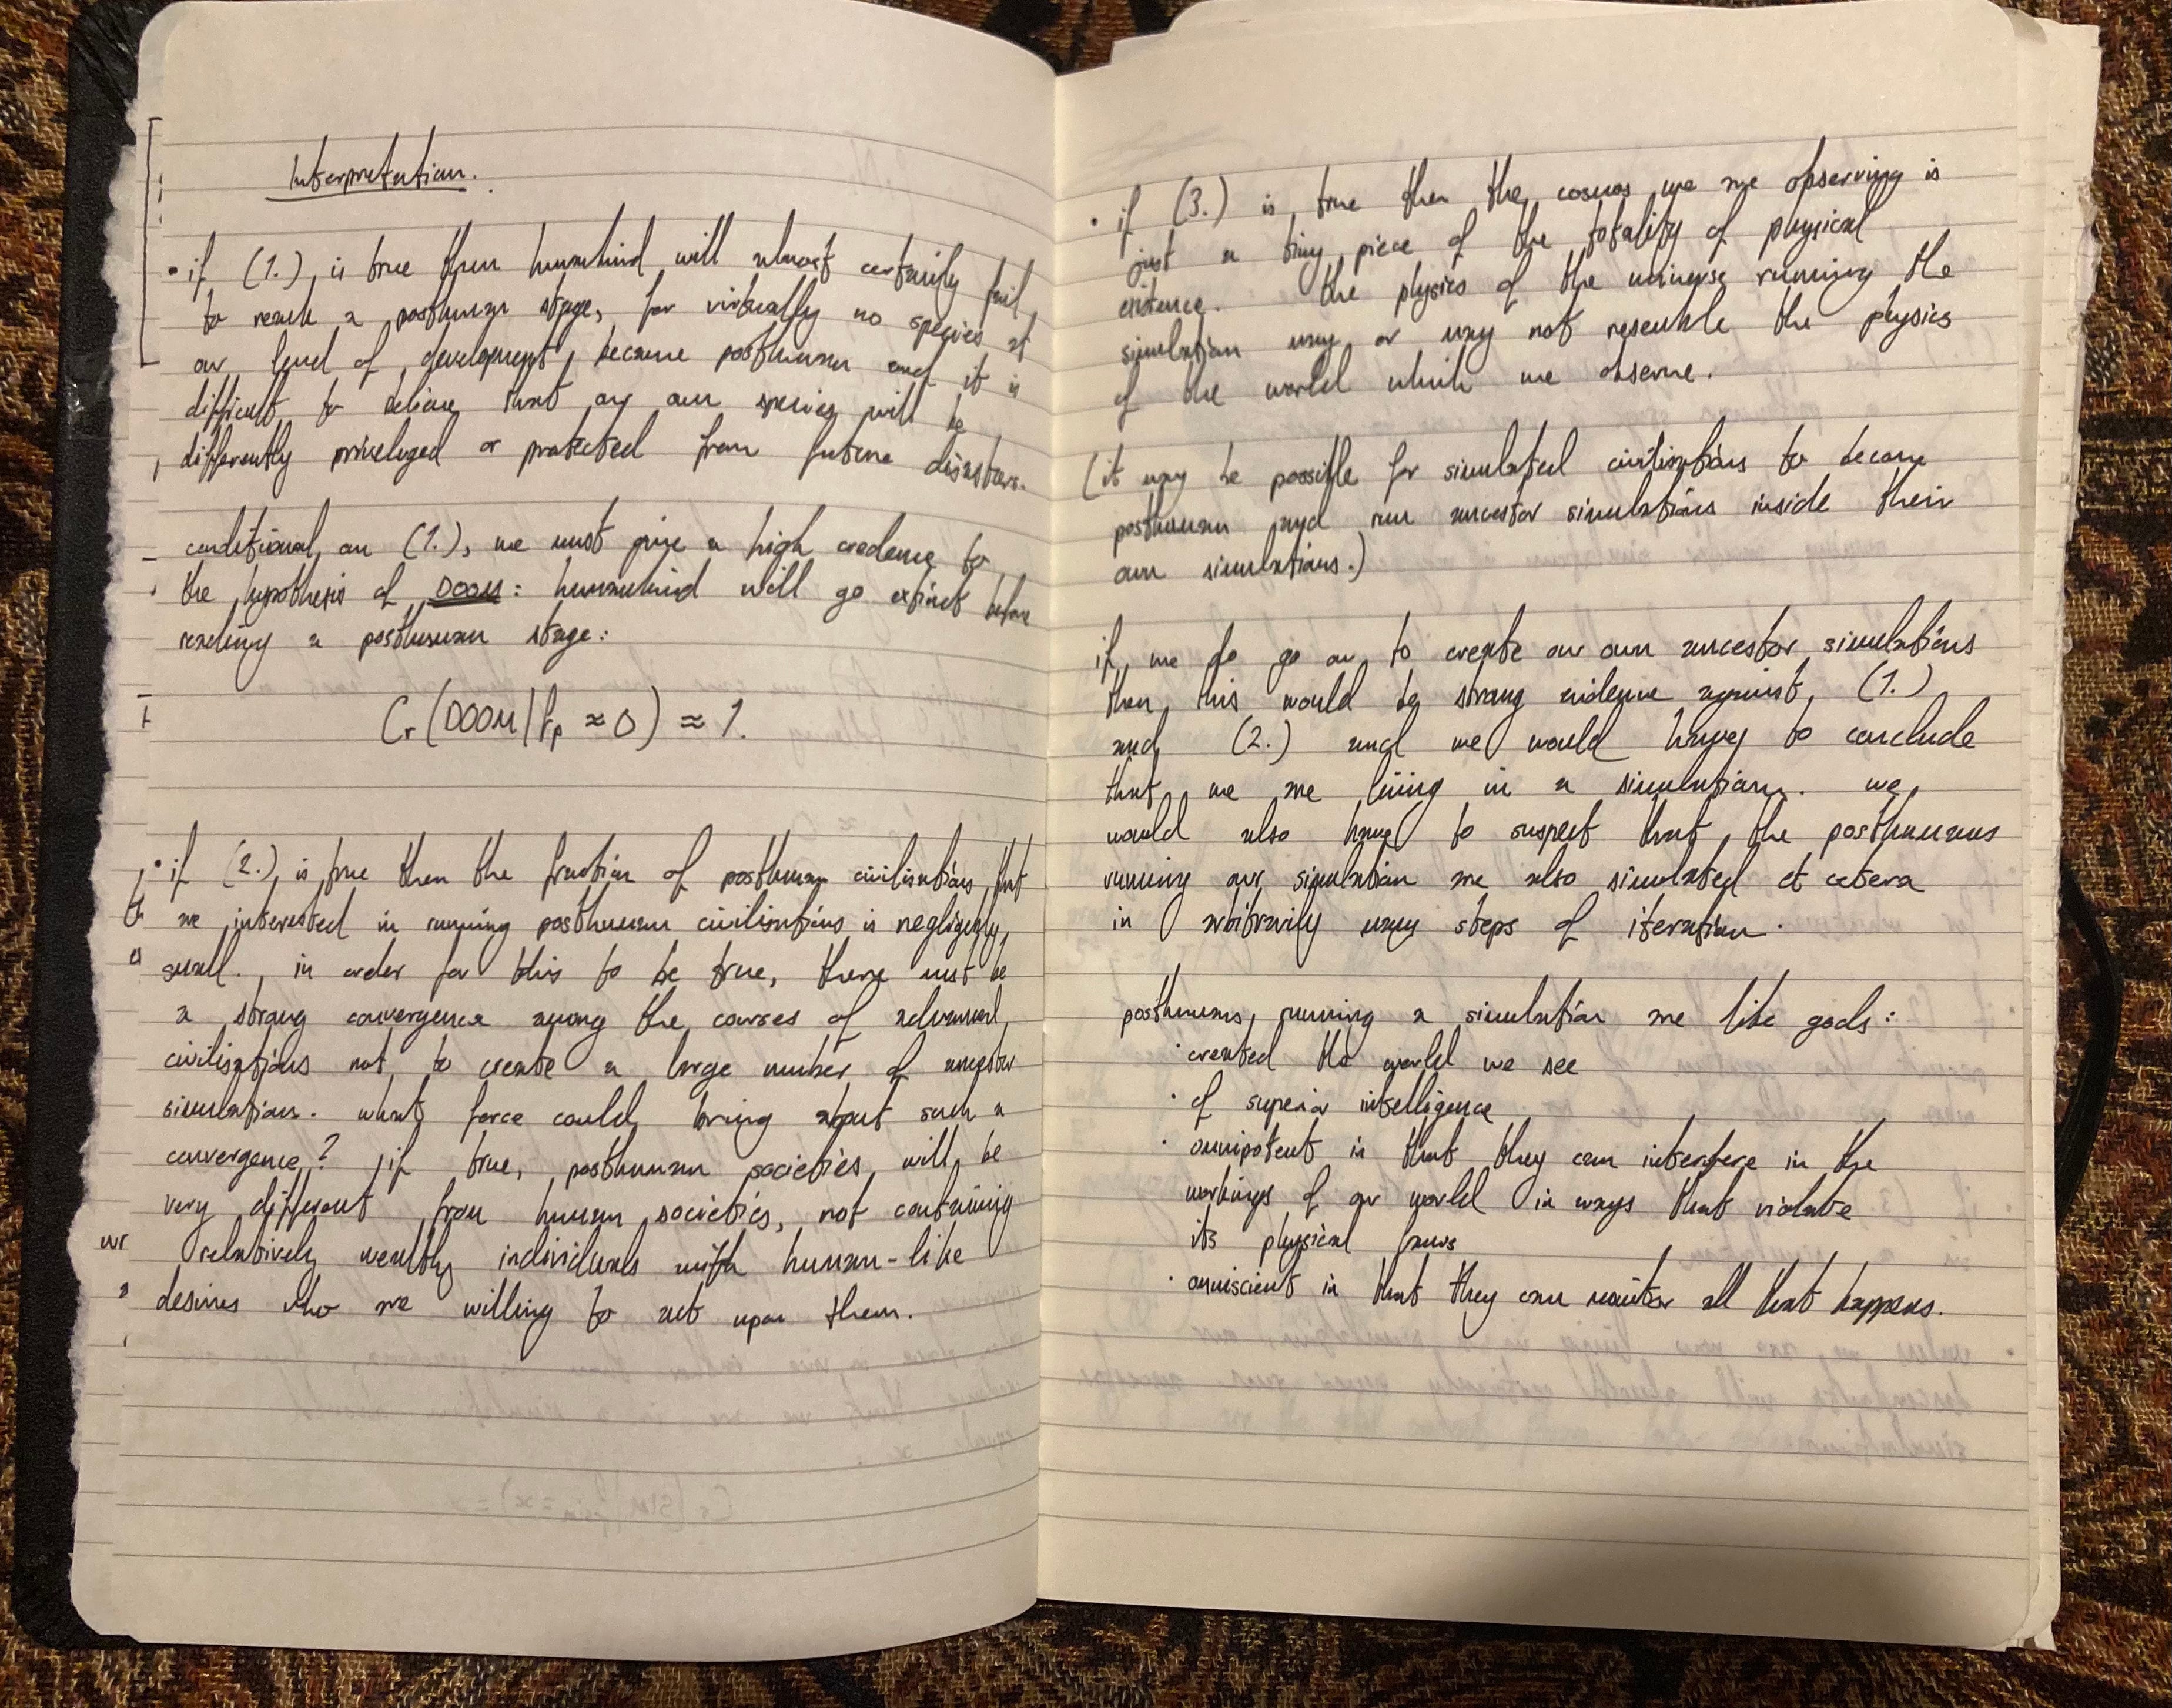 Interpretation.
• if (1.) is true then humankind will almost certainly fail
to reach a posthuman stage, for virtually no species at
our level of development become posthuman and it is
difficult to believe that our own species will be
differently priveleged or protected from future disasters.
conditional on (1.), we must give a high credence to
the hypothesis of DOOM: humankind will go extinct before
reaching a posthuman stage:
Cr(DOOM | fp ≈ 0) ≈ 1.
• if (2.) is true then the fraction of posthuman civilisations that
are interested in running posthuman civilisations is negligibly
small. in order for this to be true, there must be
a strong convergence among the courses of advanced
civilisations not to create a large number of ancestor
simulations. what force could bring about such a
convergence? if true, posthuman societies will be
very different from human societies, not containing
relatively wealthy individuals with human-like
desires who are willing to act upon them.
• if (3.) is true then the cosmos we are observing is
just a tiny piece of the totality of physical
existence. the physics of the universe running the
simulation may or may not resemble the physics
of the world which we observe.
(it may be possible for simulated civilisations to become
posthuman and run ancestor simulations inside their
own simulations.)
if we do go on to create our own ancestor simulations
then this would be strong evidence against (1.)
and (2.) and we would have to conclude
that we are living in a simulation. we
would also have to suspect that the posthumans
running our simulation are also simulated et cetera
in arbitrarily many steps of iteration.
posthumans running a simulation are like gods:
· created the world we see
· of superior intelligence
· omnipotent in that they can interfere in the
workings of our world in ways that violate
its physical laws
· omniscient in that they can monitor all that happens.